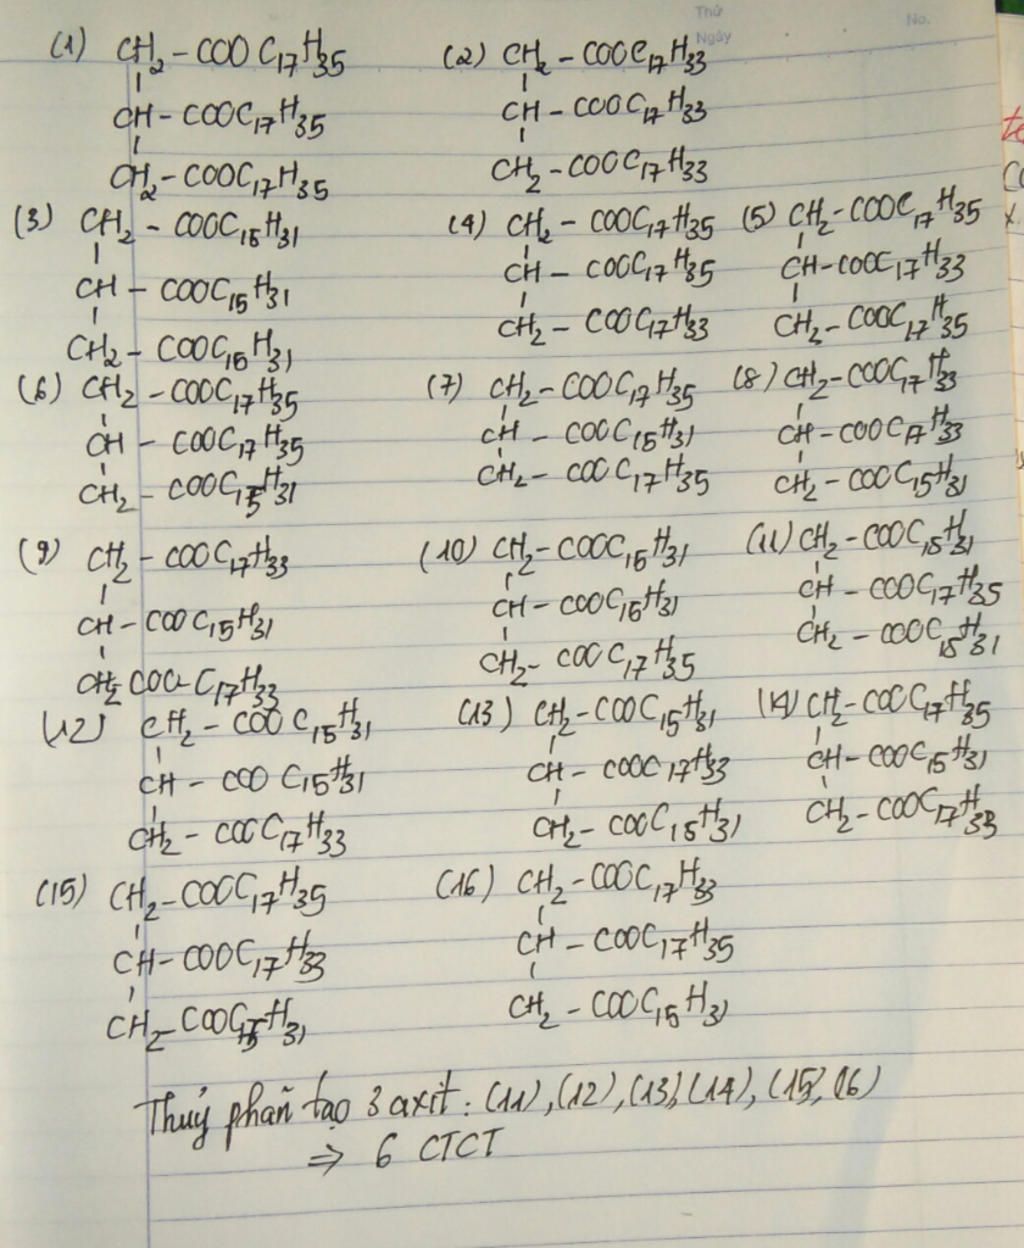 Thứ No.
Ngày
(1) CH2 - COOC17H35 (2) CH2 - COOC17H33
CH - COOC17H35 CH - COOC17H33
CH2 - COOC17H35 CH2 - COOC17H33
(3) CH2 - COOC15H31 (4) CH2 - COOC17H35 (5) CH2 - COOC17H35
CH - COOC15H31 CH - COOC17H35 CH - COOC17H33
CH2 - COOC15H31 CH2 - COOC17H33 CH2 - COOC17H35
(6) CH2 - COOC17H35 (7) CH2 - COOC17H35 (8) CH2 - COOC17H33
CH - COOC17H35 CH - COOC15H31 CH - COOC17H33
CH2 - COOC15H31 CH2 - COOC17H35 CH2 - COOC15H31
(9) CH2 - COOC17H33 (10) CH2 - COOC15H31 (11) CH2 - COOC15H31
CH - COOC15H31 CH - COOC15H31 CH - COOC17H35
CH2 COO - C17H33 CH2 - COOC17H35 CH2 - COOC15H31
(12) CH2 - COOC15H31 (13) CH2 - COOC15H31 (14) CH2 - COOC17H35
CH - COOC15H31 CH - COOC17H33 CH - COOC15H31
CH2 - COOC17H33 CH2 - COOC15H31 CH2 - COOC17H33
(15) CH2 - COOC17H35 (16) CH2 - COOC17H33
CH - COOC17H33 CH - COOC17H35
CH2 - COOC15H31 CH2 - COOC15H31
Thuỷ phân tạo 3 axit: (11), (12), (13), (14), (15), (16)
⇒ 6 CTCT